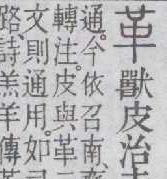 革獸皮治
通。今依召南,齊
轉注。皮與革二
文則通用。如
路。詩羔羊傳